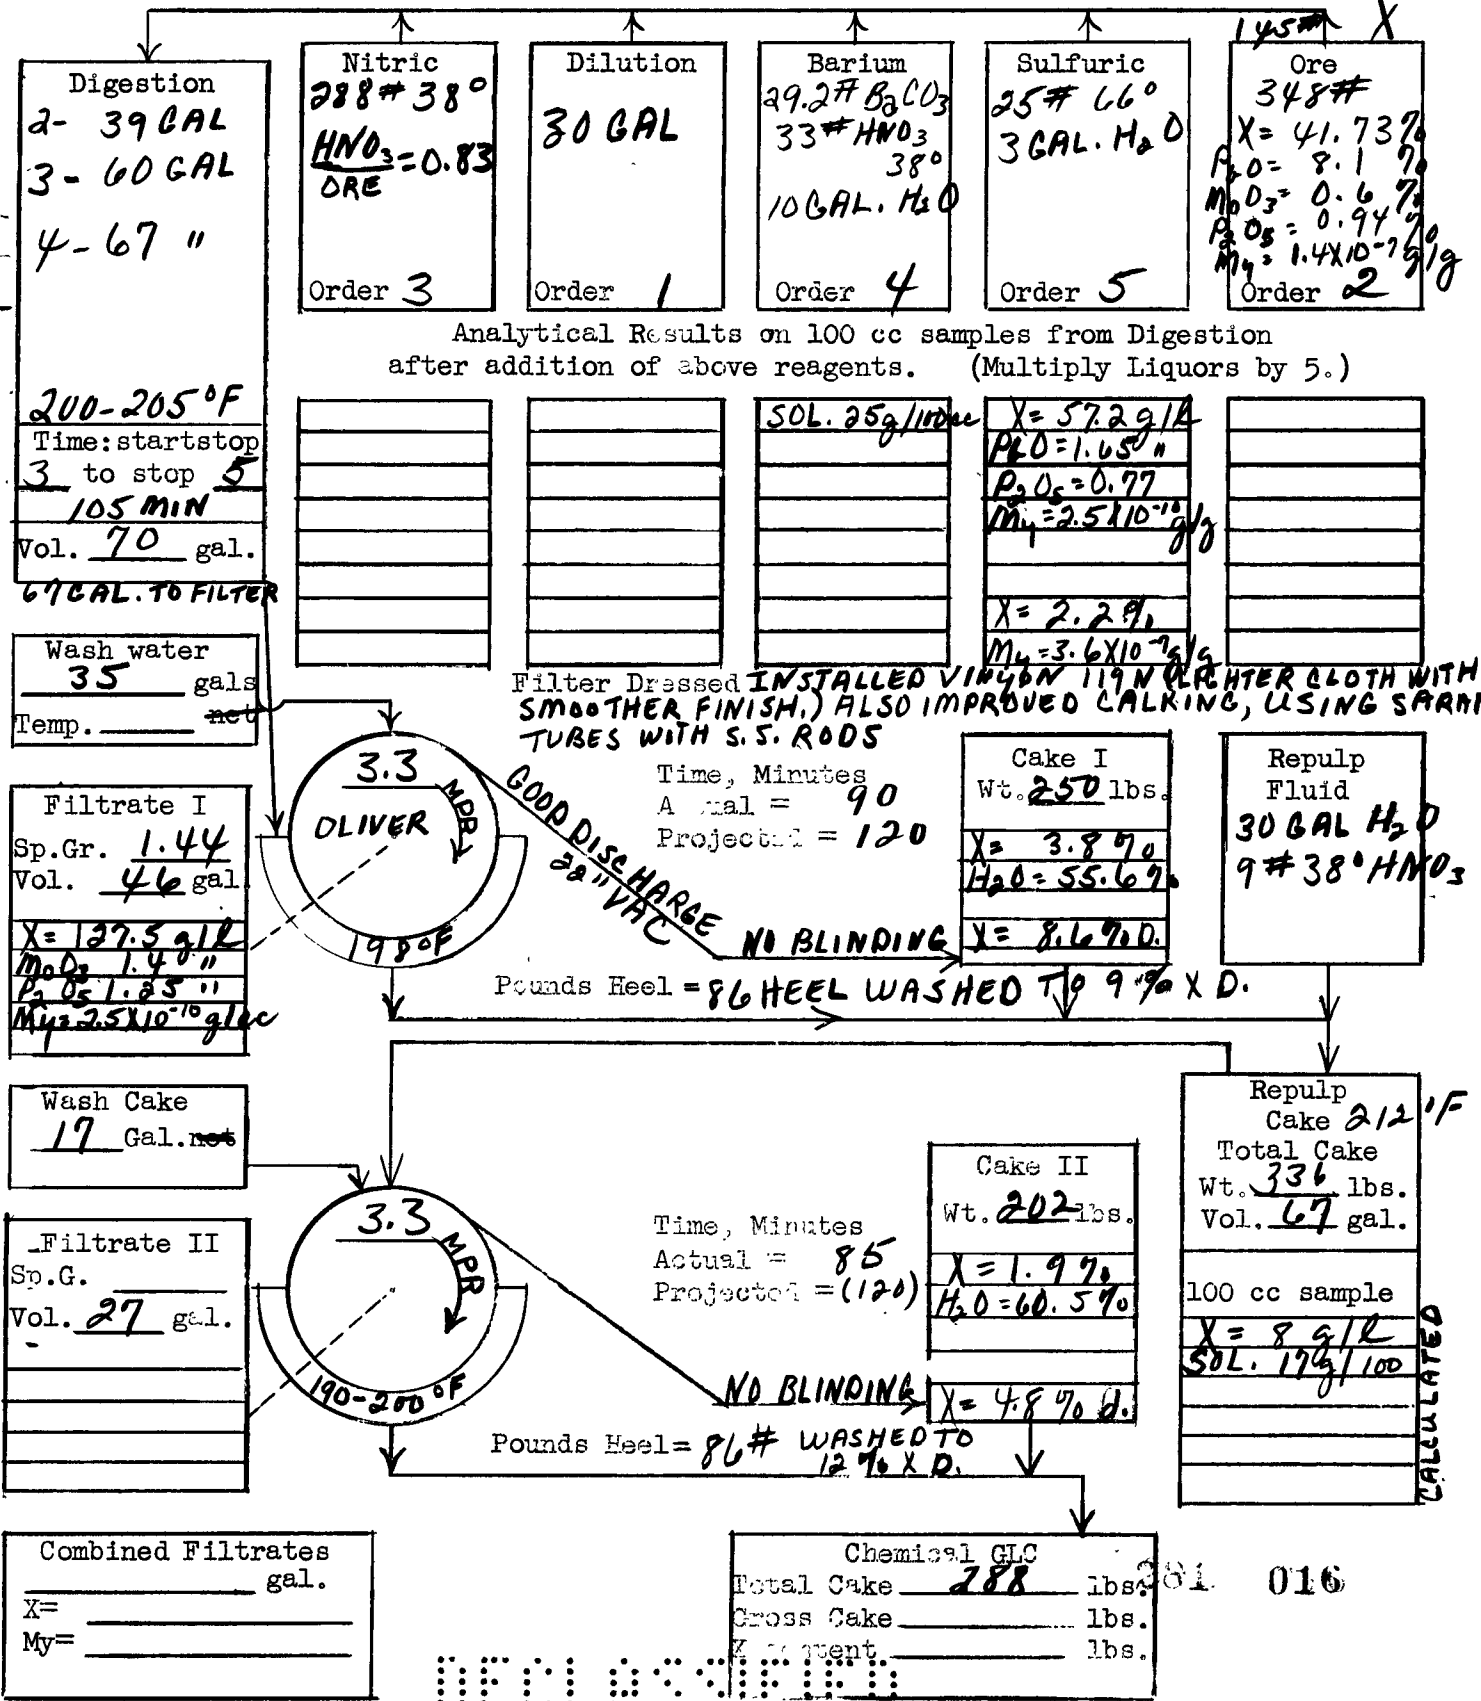 145# X
Digestion
2- 39 GAL
3- 60 GAL
4-67 "
200-205°F
Time: startstop
3 to stop 5
105 MIN
Vol. 70 gal.
67 GAL. TO FILTER
Nitric
288# 38°
HNO3/ORE = 0.83
Order 3
Dilution
30 GAL
Order 1
Barium
29.2# BaCO3
33# HNO3
38°
10 GAL. H2O
Order 4
Sulfuric
25# 66°
3 GAL. H2O
Order 5
Ore
348#
X= 41.73%
PbO= 8.1 %
MoO3= 0.6 %
P2O5= 0.94 %
My= 1.4X10-7 g/g
Order 2
Analytical Results on 100 cc samples from Digestion
after addition of above reagents. (Multiply Liquors by 5.)
SOL. 25g/100cc
X= 57.2 g/l
PbO=1.65 "
P2O5=0.77
My=2.5X10-10 g/g
X= 2.2%
My=3.6X10-7 g/g
Wash water
35 gals
net
Temp.
Filter Dressed INSTALLED VINYON 119N (LIGHTER CLOTH WITH
SMOOTHER FINISH.) ALSO IMPROVED CALKING, USING SARAN
TUBES WITH S.S. RODS
Filtrate I
Sp.Gr. 1.44
Vol. 46 gal
X= 127.5 g/l
MoO3 1.4 "
P2O5 1.25 "
My=2.5X10-10 g/cc
3.3
MPR
OLIVER
198°F
GOOD DISCHARGE
22" VAC
NO BLINDING
Time, Minutes
A ual = 90
Projected = 120
Cake I
Wt. 250 lbs.
X= 3.8%
H2O= 55.6%
X= 8.6% D.
Repulp
Fluid
30 GAL H2O
9# 38° HNO3
Pounds Heel = 86 HEEL WASHED TO 9 % X D.
Wash Cake
17 Gal. net
Filtrate II
Sp.G.
Vol. 27 gal.
3.3
MPR
190-200°F
NO BLINDING
Time, Minutes
Actual = 85
Projected = (120)
Cake II
Wt. 202 lbs.
X= 1.9%
H2O=60.5%
X= 4.8% d.
Repulp
Cake 212°F
Total Cake
Wt. 336 lbs.
Vol. 67 gal.
100 cc sample
X= 8 g/l
SOL. 17g/100
CALCULATED
Pounds Heel= 86# WASHED TO
12% X D.
Combined Filtrates
gal.
X=
My=
Chemical GLC
Total Cake 288 lbs.
Gross Cake lbs.
lbs.
281 016
DECLASSIFIED